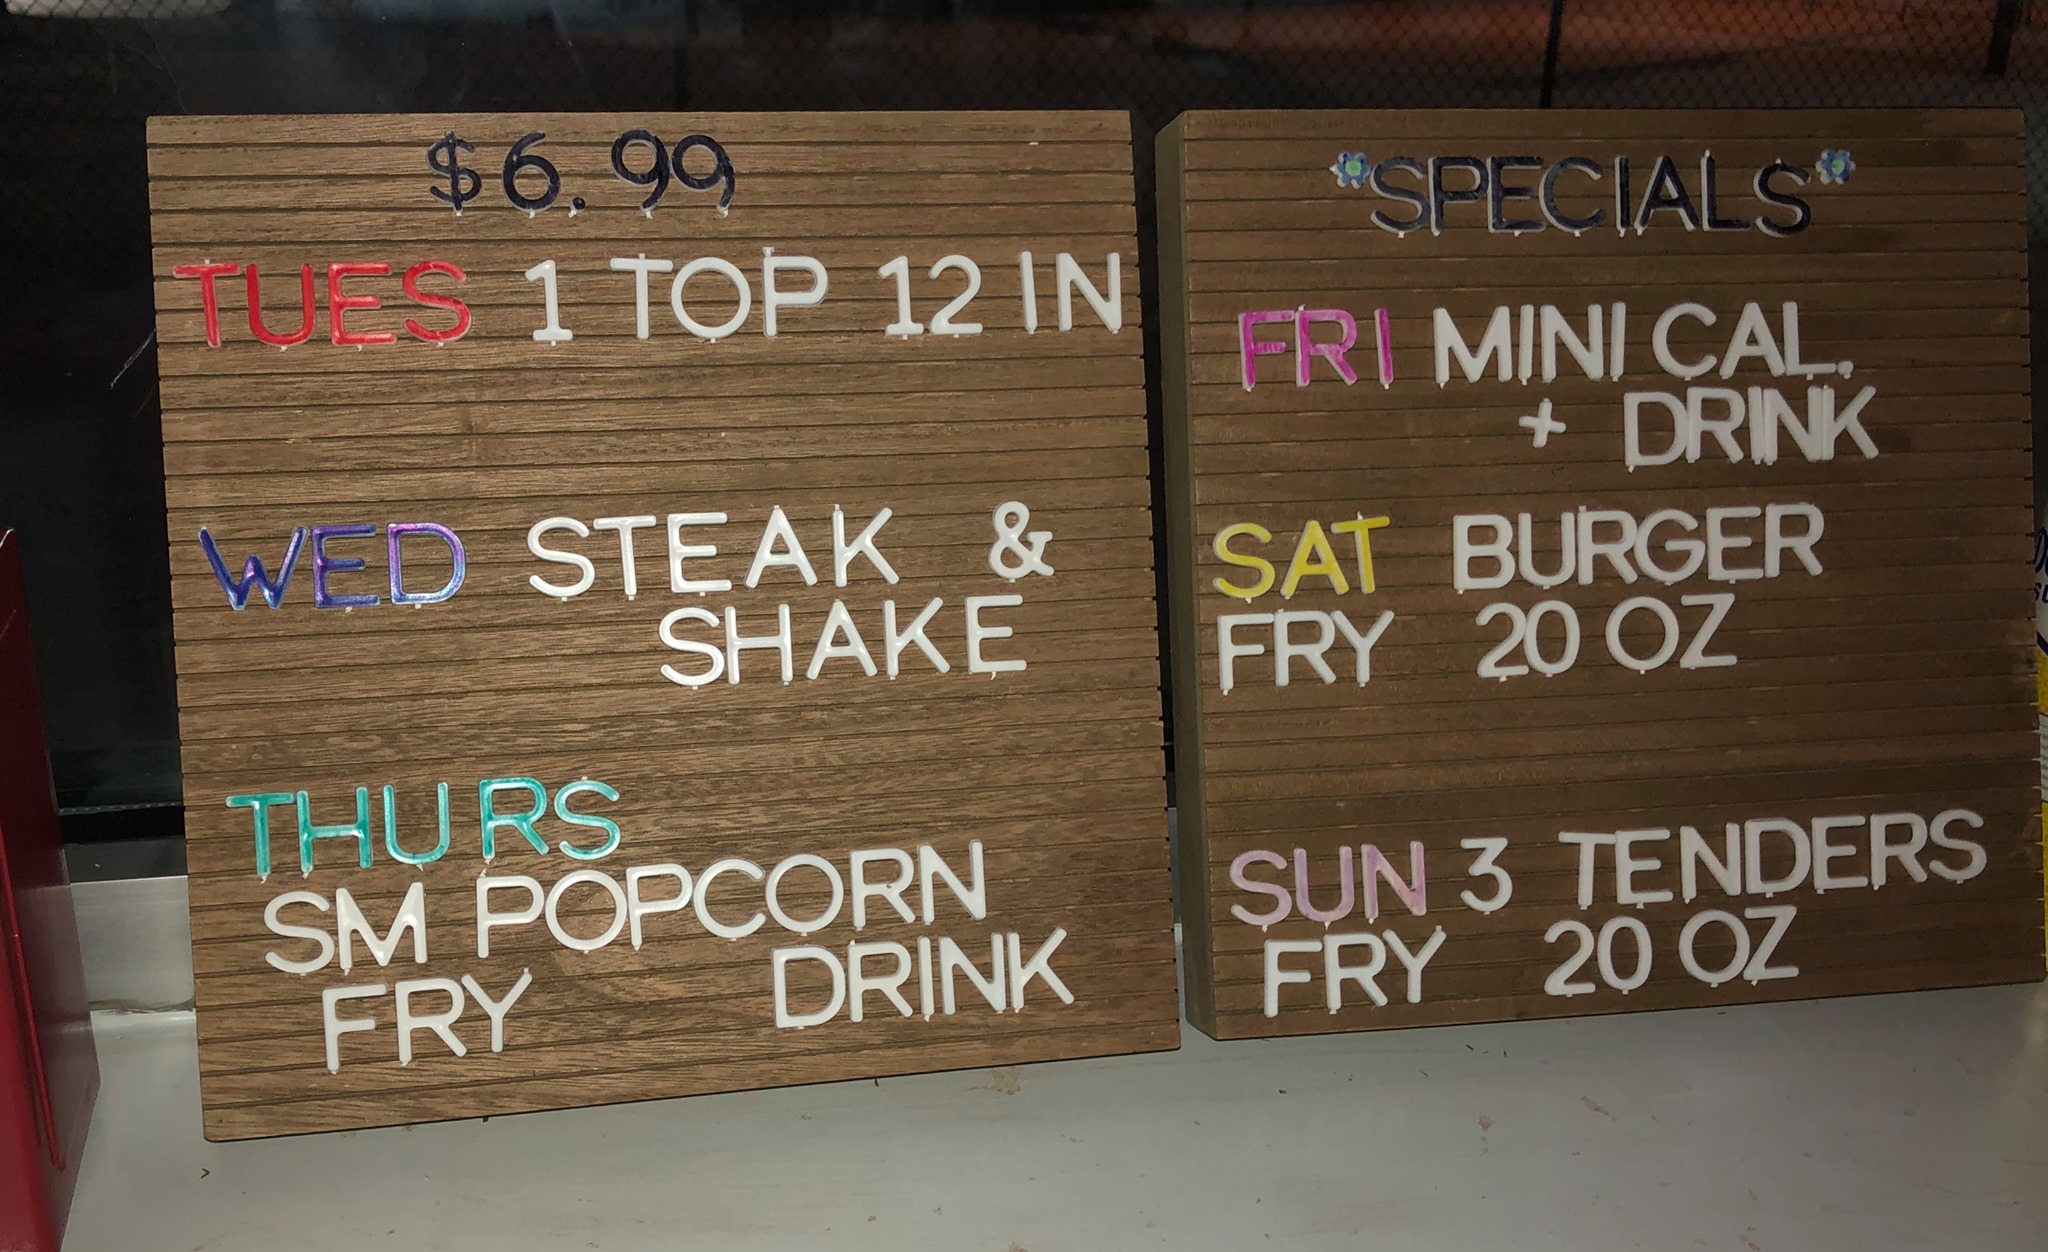 $6.99
TUES 1 TOP 12 IN
WED STEAK &
SHAKE
THURS
SM POPCORN
FRY DRINK
*SPECIALS*
FRI MINI CAL.
+ DRINK
SAT BURGER
FRY 20 OZ
SUN 3 TENDERS
FRY 20 OZ